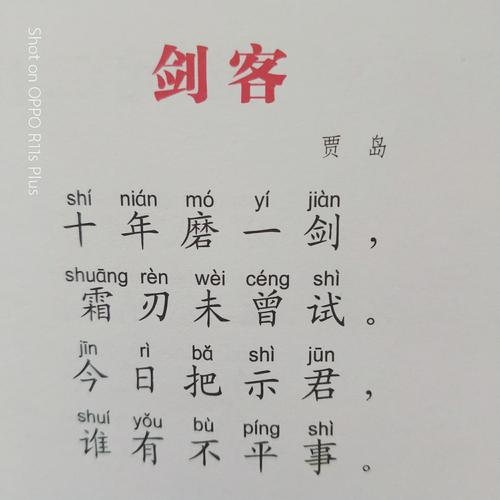 Shot on OPPO R11s Plus
剑客
贾岛
shí nián mó yí jiàn
十年磨一剑，
shuāng rèn wèi céng shì
霜刃未曾试。
jīn rì bǎ shì jūn
今日把示君，
shuí yǒu bù píng shì
谁有不平事。